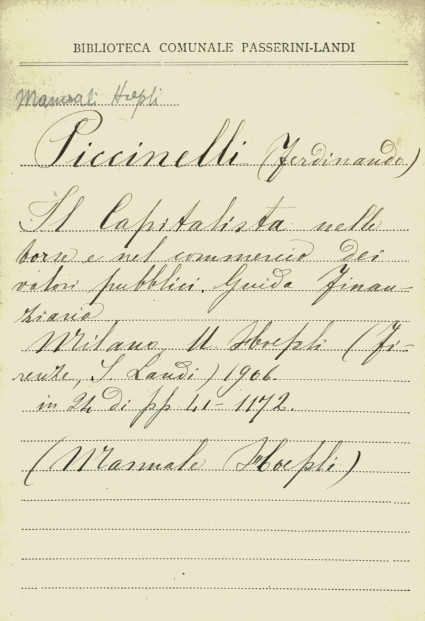 BIBLIOTECA COMUNALE PASSERINI-LANDI
Manuali Hoepli
Piccinelli (Ferdinando)
Il Capitalista nelle
borse e nel commercio dei
valori pubblici. Guida Finan-
ziaria
Milano, U Hoepli (Fi-
renze, S. Landi) 1906.
in 24 di pp LI-1172.
(Manuale Hoepli)